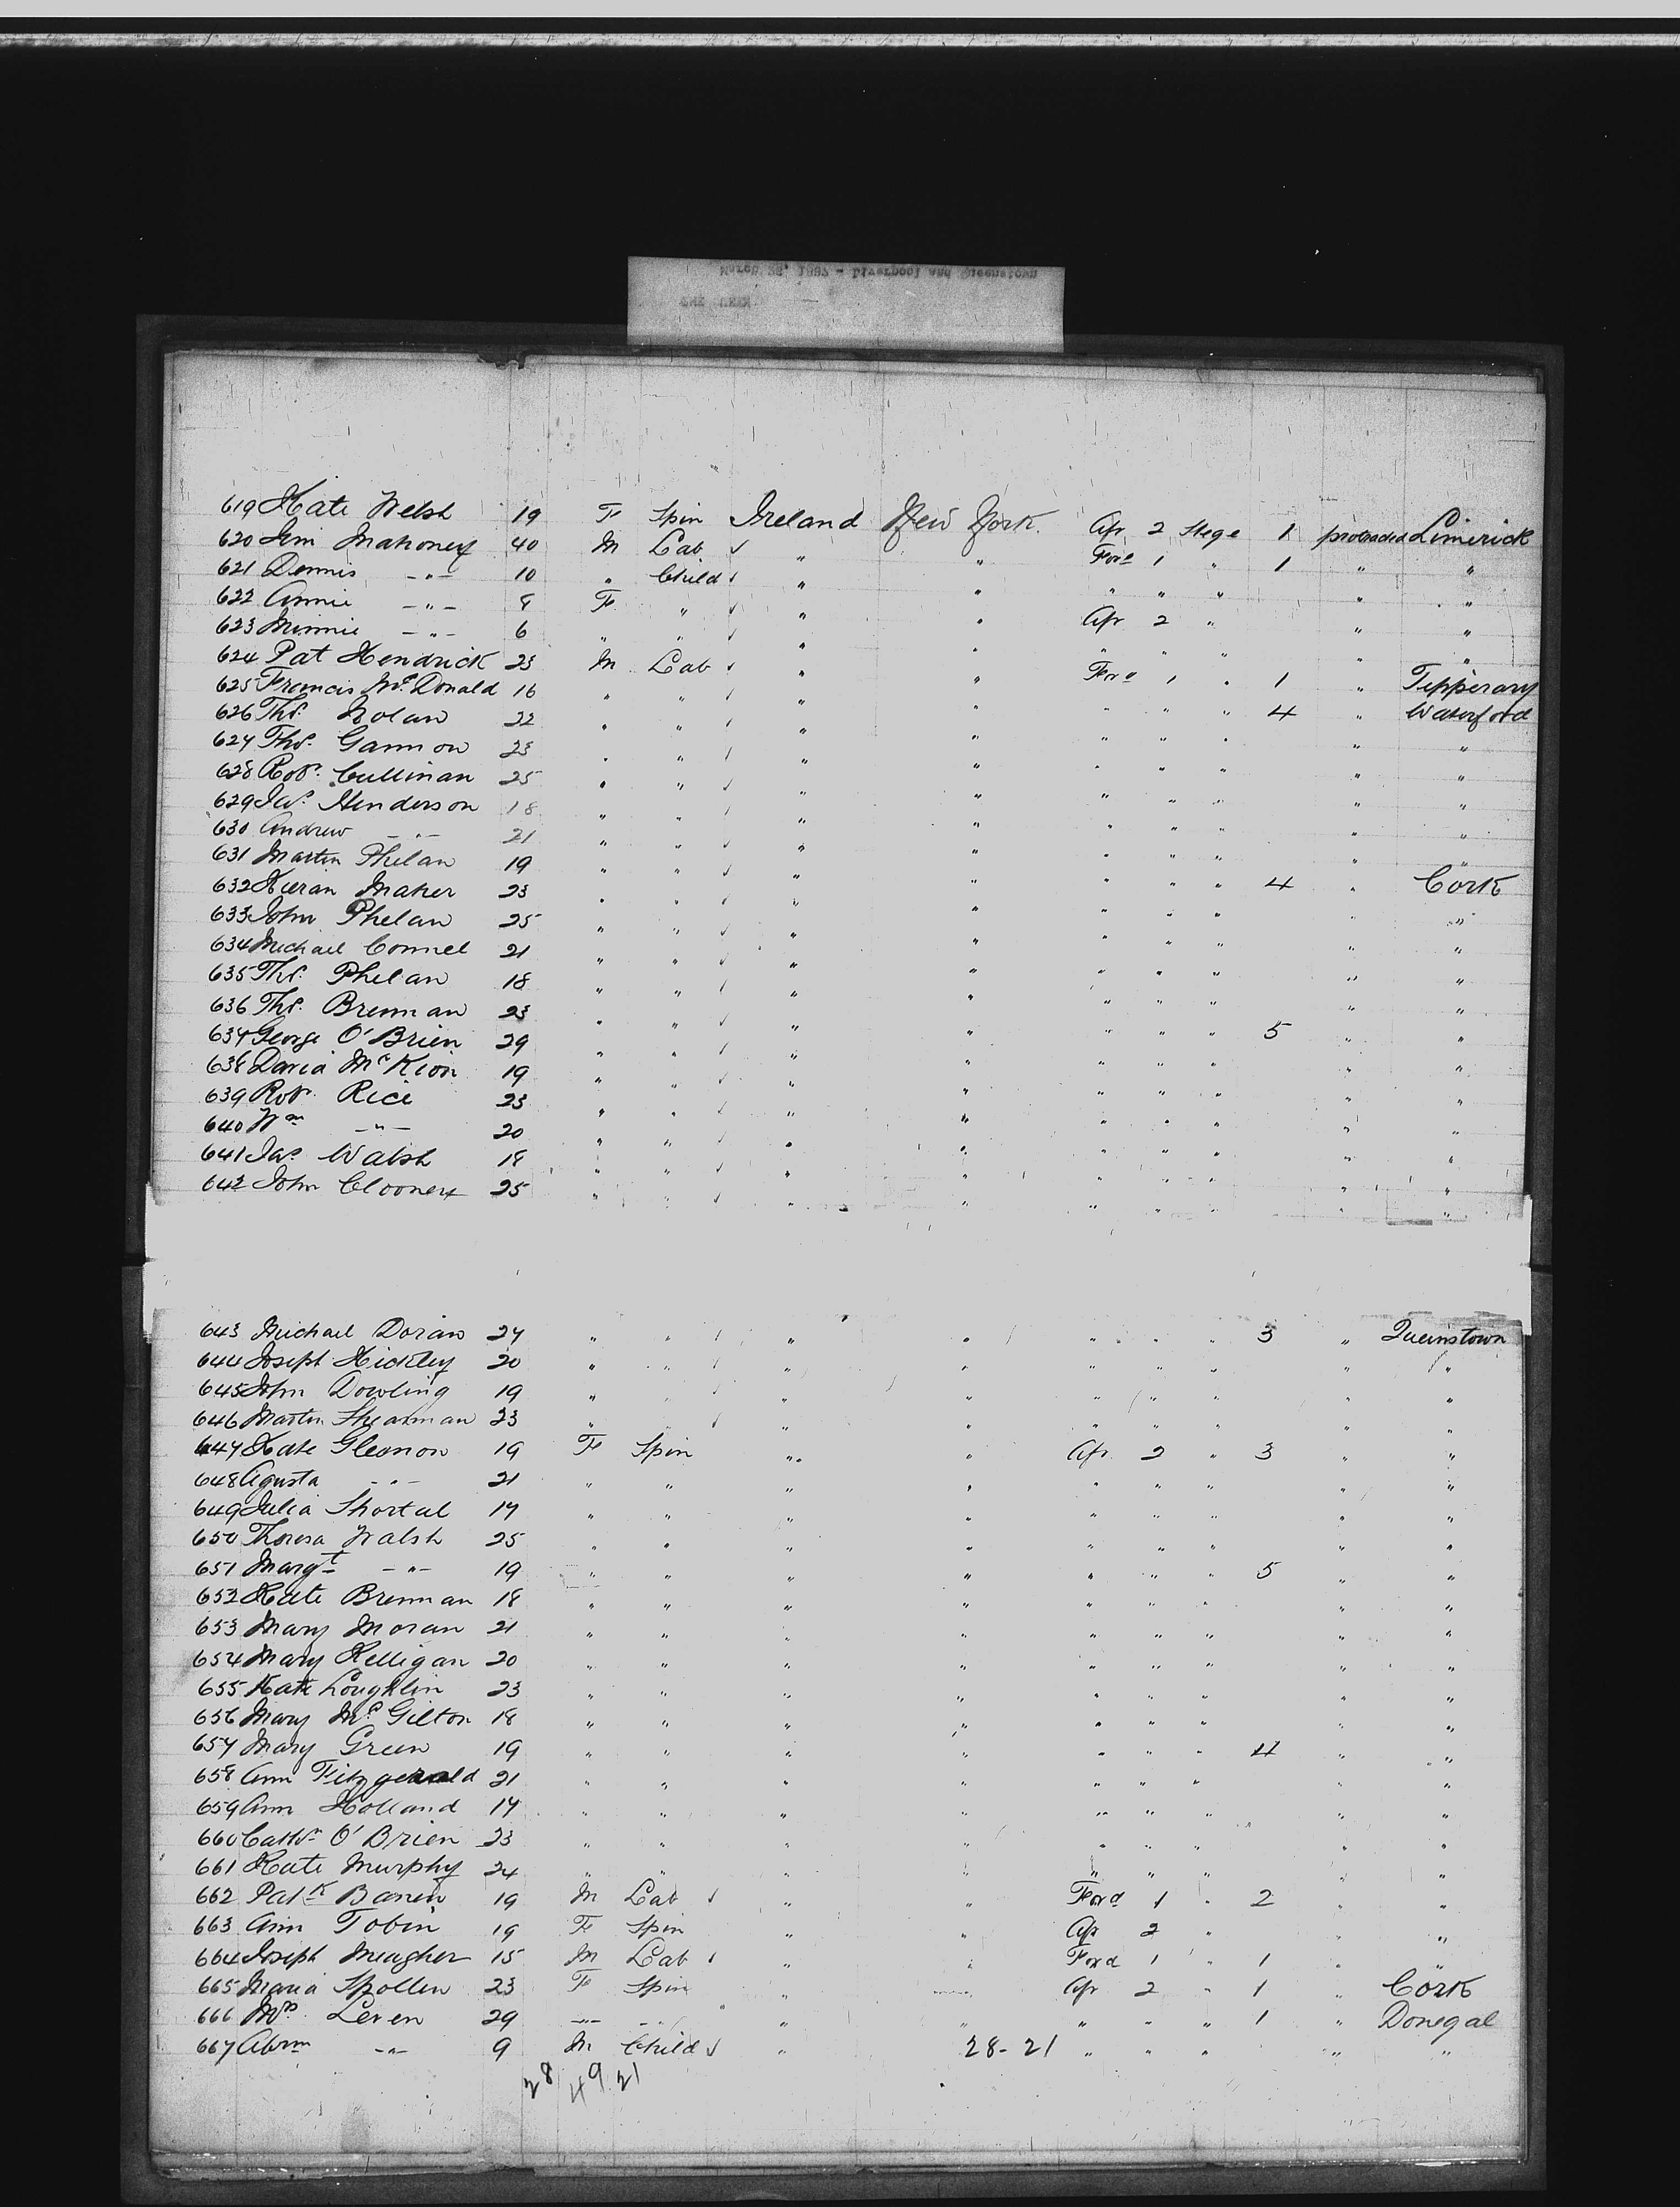 619 Kate Welsh 19 F Spin Ireland New York Af 2 Stege 1 protracted Limerick
620 Jem Mahoney 40 M Lab ✓ " " For'd 1 " 1 " "
621 Dennis —"— 10 " Child ✓ " " " " " " "
622 Annie —"— 8 F " ✓ " " Af 2 " " "
623 Minnie —"— 6 " " ✓ " " " " " " "
624 Pat Hendrick 23 M Lab ✓ " " For'd 1 " 1 " Tipperary
625 Francis McDonald 16 " " ✓ " " " " " 4 " Waterford
626 Thos. Nolan 22 " " ✓ " " " " " " "
627 Thos. Gannon 23 " " ✓ " " " " " " "
628 Robt. Cullinan 25 " " ✓ " " " " " " "
629 Jas. Henderson 18 " " ✓ " " " " " " "
630 Andrew —"— 21 " " ✓ " " " " " " "
631 Martin Phelan 19 " " ✓ " " " " " 4 " Cork
632 Kieran Maher 23 " " ✓ " " " " " " "
633 John Phelan 25 " " ✓ " " " " " " "
634 Michael Connel 21 " " ✓ " " " " " " "
635 Thos. Phelan 18 " " ✓ " " " " " " "
636 Thos. Brennan 23 " " ✓ " " " " " 5 " "
637 George O'Brien 29 " " ✓ " " " " " " "
638 David McKion 19 " " ✓ " " " " " " "
639 Robt. Rice 23 " " ✓ " " " " " " "
640 Wm —"— 20 " " ✓ " " " " " " "
641 Jas. Walsh 18 " " ✓ " " " " " " "
642 John Clooney 25 " " ✓ " " " " " " "
643 Michael Doran 27 " " ✓ " " " " " 3 " Queenstown
644 Joseph Hickley 20 " " ✓ " " " " " " "
645 John Dowling 19 " " ✓ " " " " " " "
646 Martin Shearman 23 " " ✓ " " " " " " "
647 Kate Gleanon 19 F Spin " " Af 2 " 3 " "
648 Agusta —"— 21 " " " " " " " " "
649 Julia Shortal 17 " " " " " " " " "
650 Theresa Walsh 25 " " " " " " " " "
651 Margt —"— 19 " " " " " " " 5 " "
652 Kate Brennan 18 " " " " " " " " "
653 Mary Moran 21 " " " " " " " " "
654 Mary Kelligan 20 " " " " " " " " "
655 Kate Loughlin 23 " " " " " " " " "
656 Mary McGilton 18 " " " " " " " " "
657 Mary Green 19 " " " " " " " 4 " "
658 Ann Fitzgerald 21 " " " " " " " " "
659 Ann Holland 17 " " " " " " " " "
660 Cathn O'Brien 23 " " " " " " " " "
661 Kate Murphy 24 " " " " " " " " "
662 Patk Banen 19 M Lab ✓ " " For'd 1 " 2 " "
663 Ann Tobin 19 F Spin " " Af 2 " " "
664 Joseph Meagher 15 M Lab ✓ " " For'd 1 " 1 " "
665 Maria Spollen 23 F Spin " " Af 2 " 1 " Cork
666 Mrs. Leven 29 —"— —"— " " " " " 1 " Donegal
667 Abrm —"— 9 M Child ✓ " 28-21 " " " " "
28 49 21